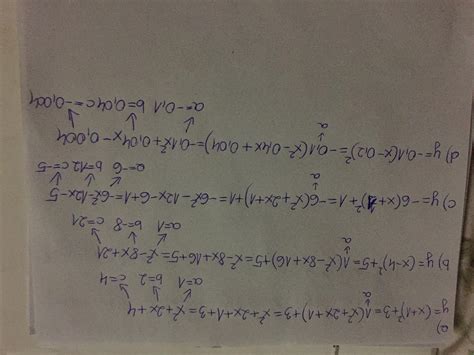 a)
y=(x+1)²+3=1(x²+2x+1)+3=x²+2x+1+3=x²+2x+4
a
a=1 b=2 c=4
b) y=(x-4)²+5=1(x²-8x+16)+5=x²-8x+16+5=x²-8x+21
a
a=1 b=-8 c=21
c) y=-6(x+1)²+1=-6(x²+2x+1)+1=-6x²-12x-6+1=-6x²-12x-5
a
a=-6 b=-12 c=-5
d) y=-0,1(x-0,2)²=-0,1(x²-0,4x+0,04)=-0,1x²+0,04x-0,004
a
a=-0,1 b=0,04 c=-0,004